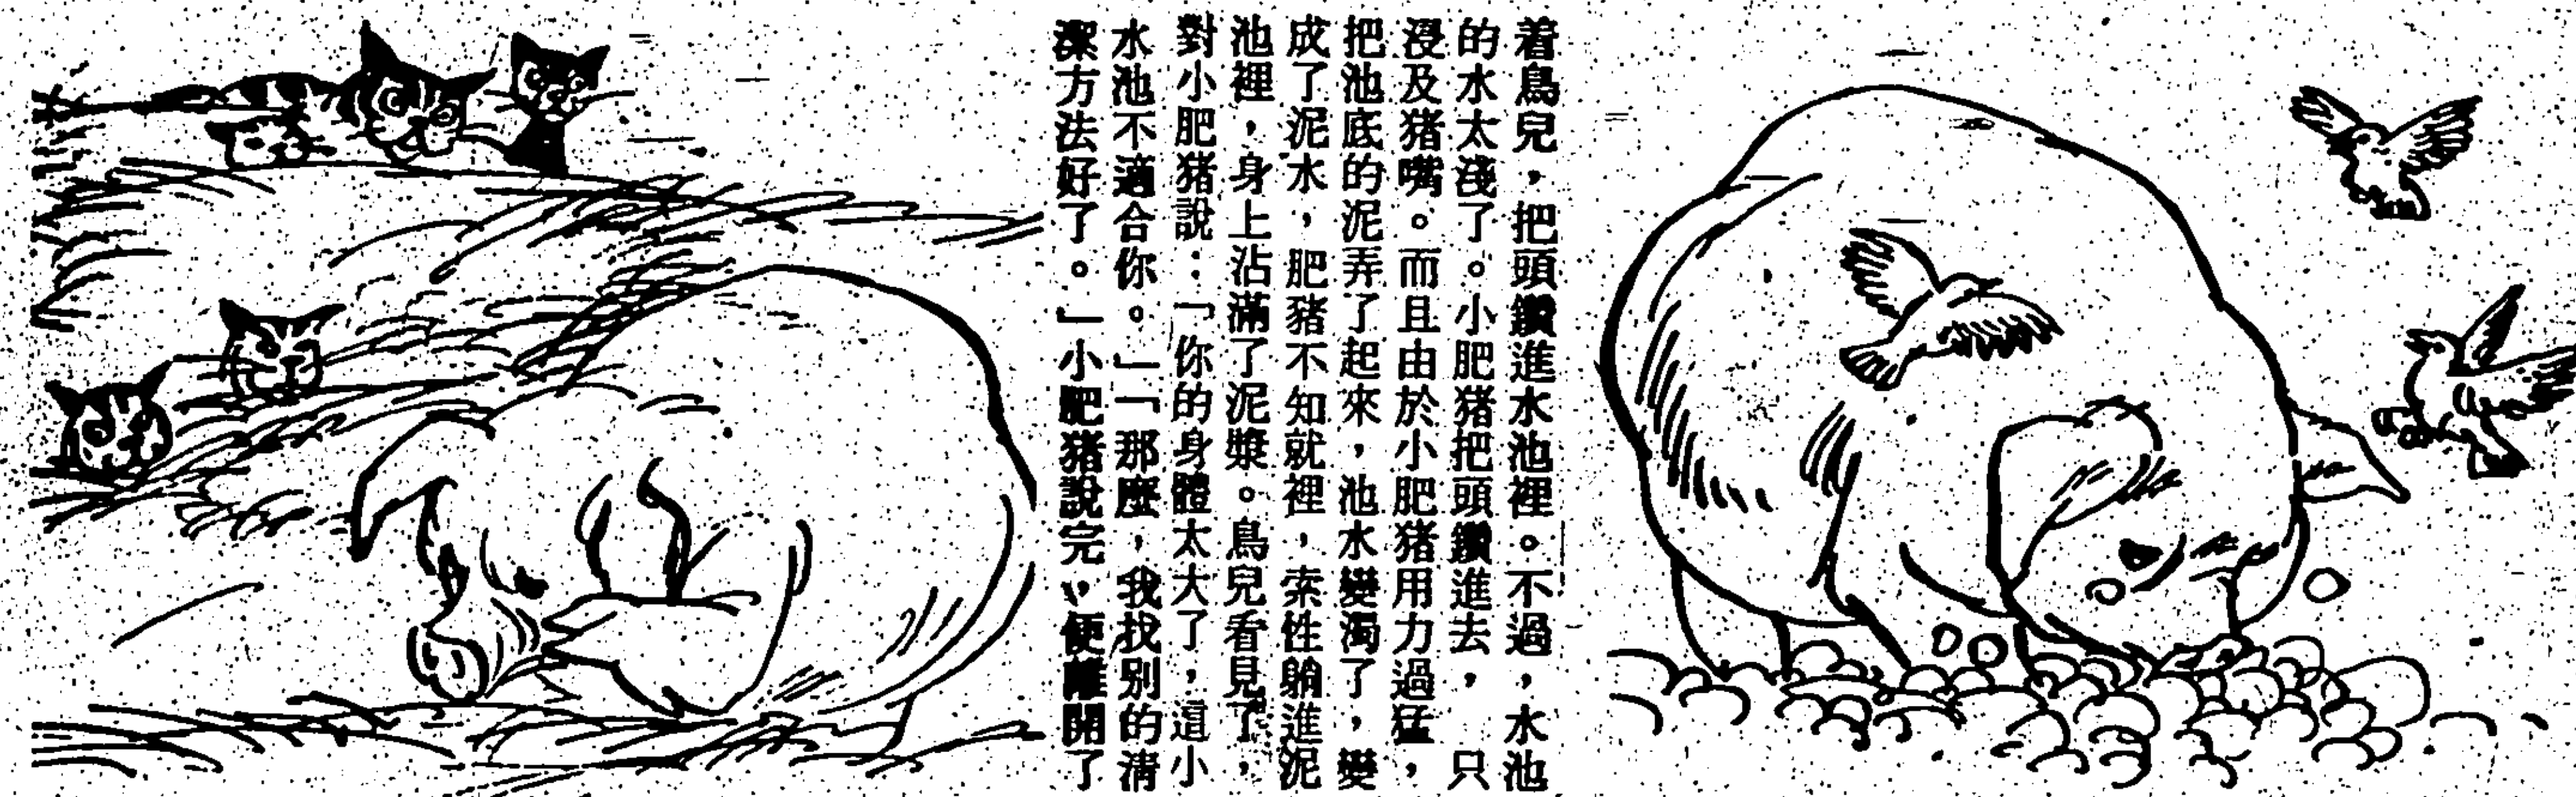 着鳥兒，把頭鑽進水池裡。不過，水池
的水太淺了。小肥猪把頭鑽進去，只
浸及猪嘴。而且由於小肥猪用力過猛，
把池底的泥弄了起來，池水變濁了，變
成了泥水，肥豬不知就裡，索性躺進泥
池裡，身上沾滿了泥漿。鳥兒看見了，
對小肥猪說：「你的身體太大了，這小
水池不適合你。」「那麼，我找别的清
潔方法好了。」小肥猪說完，便離開了